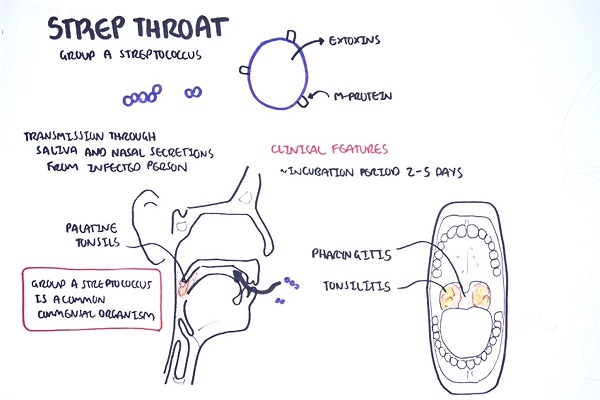 STREP THROAT
GROUP A STREPTOCOCCUS
EXTOXINS
M-PROTEIN
TRANSMISSION THROUGH
SALIVA AND NASAL SECRETIONS
FROM INFECTED PERSON
CLINICAL FEATURES
~INCUBATION PERIOD 2-5 DAYS
PALATINE
TONSILS
GROUP A STREPTOCOCCUS
IS A COMMON
COMMENSAL ORGANISM
PHARYNGITIS
TONSILITIS